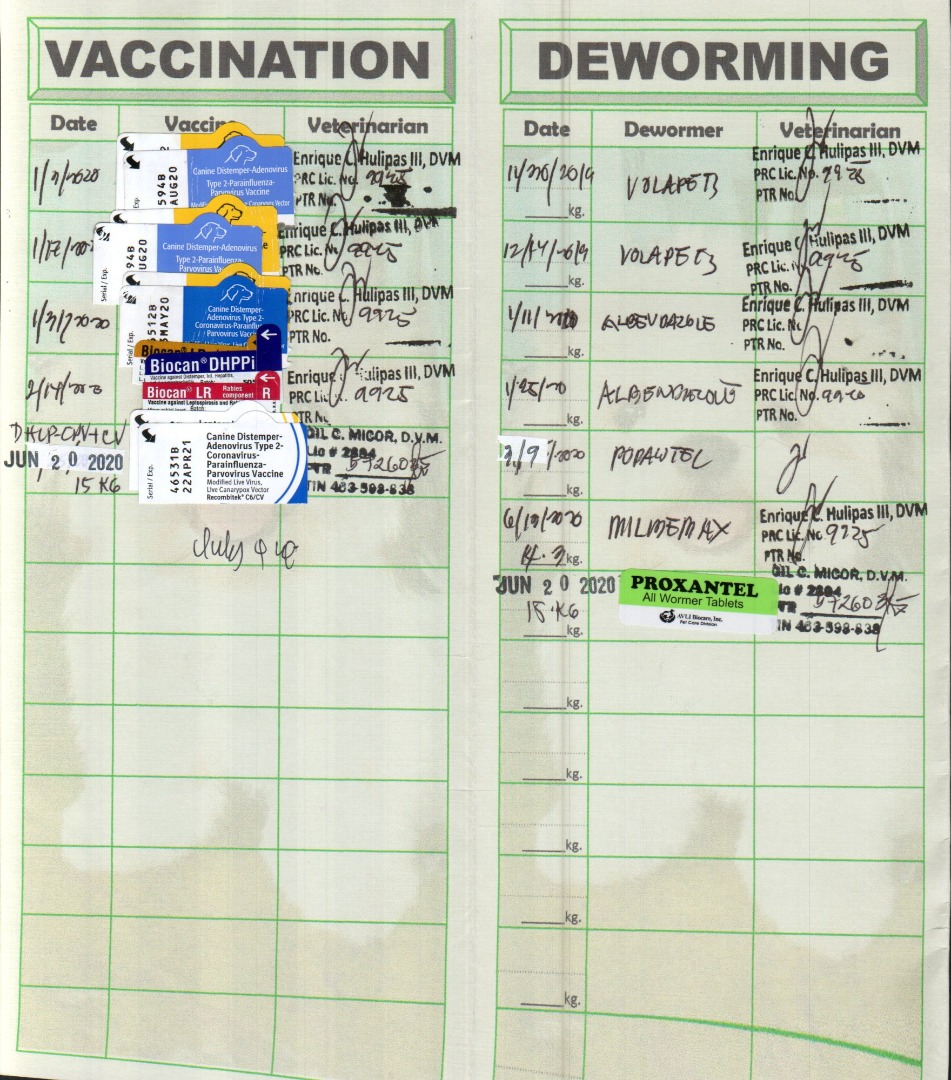 VACCINATION
Date Vaccine Veterinarian
594B
AUG20
Exp
Canine Distemper-Adenovirus
Type 2-Parainfluenza-
Parvovirus Vaccine
Enrique C. Hulipas III, DVM
PRC Lic. No. 9925
PTR No.
94B
UG20
Serial / Exp.
Canine Distemper-Adenovirus
Type 2-Parainfluenza-
Parvovirus Vaccine
Enrique C. Hulipas III, DVM
PRC Lic. No. 9925
PTR No.
1/31/2020
512B
MAY20
Serial / Exp.
Canine Distemper-
Adenovirus Type 2-
Coronavirus-Parainfluenza-
Parvovirus Vaccine
Enrique C. Hulipas III, DVM
PRC Lic. No. 9925
PTR No.
Biocan® DHPPi
Biocan® LR Rabies component R
Enrique C. Hulipas III, DVM
PRC Lic. No. 9925
PTR No.
JUN 20 2020
15 KG
Serial / Exp.
46531B
22APR21
Canine Distemper-
Adenovirus Type 2-
Coronavirus-
Parainfluenza-
Parvovirus Vaccine
Modified Live Virus,
Live Canarypox Vector
Recombitek® C6/CV
GIL C. MICOR, D.V.M.
Lic # 2884
PTR
TIN 463-598-838
DEWORMING
Date Dewormer Veterinarian
kg.
VOLAPETS
Enrique C. Hulipas III, DVM
PRC Lic. No. 9925
PTR No.
kg.
VOLAPETS
Enrique C. Hulipas III, DVM
PRC Lic. No. 9925
PTR No.
kg.
Enrique C. Hulipas III, DVM
PRC Lic. No.
PTR No.
1/25/20
kg.
Enrique C. Hulipas III, DVM
PRC Lic. No.
PTR No.
3/9/2020
kg.
6/13/2020
14.3 kg.
MILBEMAX
Enrique C. Hulipas III, DVM
PRC Lic. No. 9925
PTR No.
JUN 20 2020
15 KG
kg.
PROXANTEL
All Wormer Tablets
AVLI Biocare, Inc.
Pet Care Division
GIL C. MICOR, D.V.M.
Lic # 2884
PTR
TIN 463-598-838
kg.
kg.
kg.
kg.
kg.